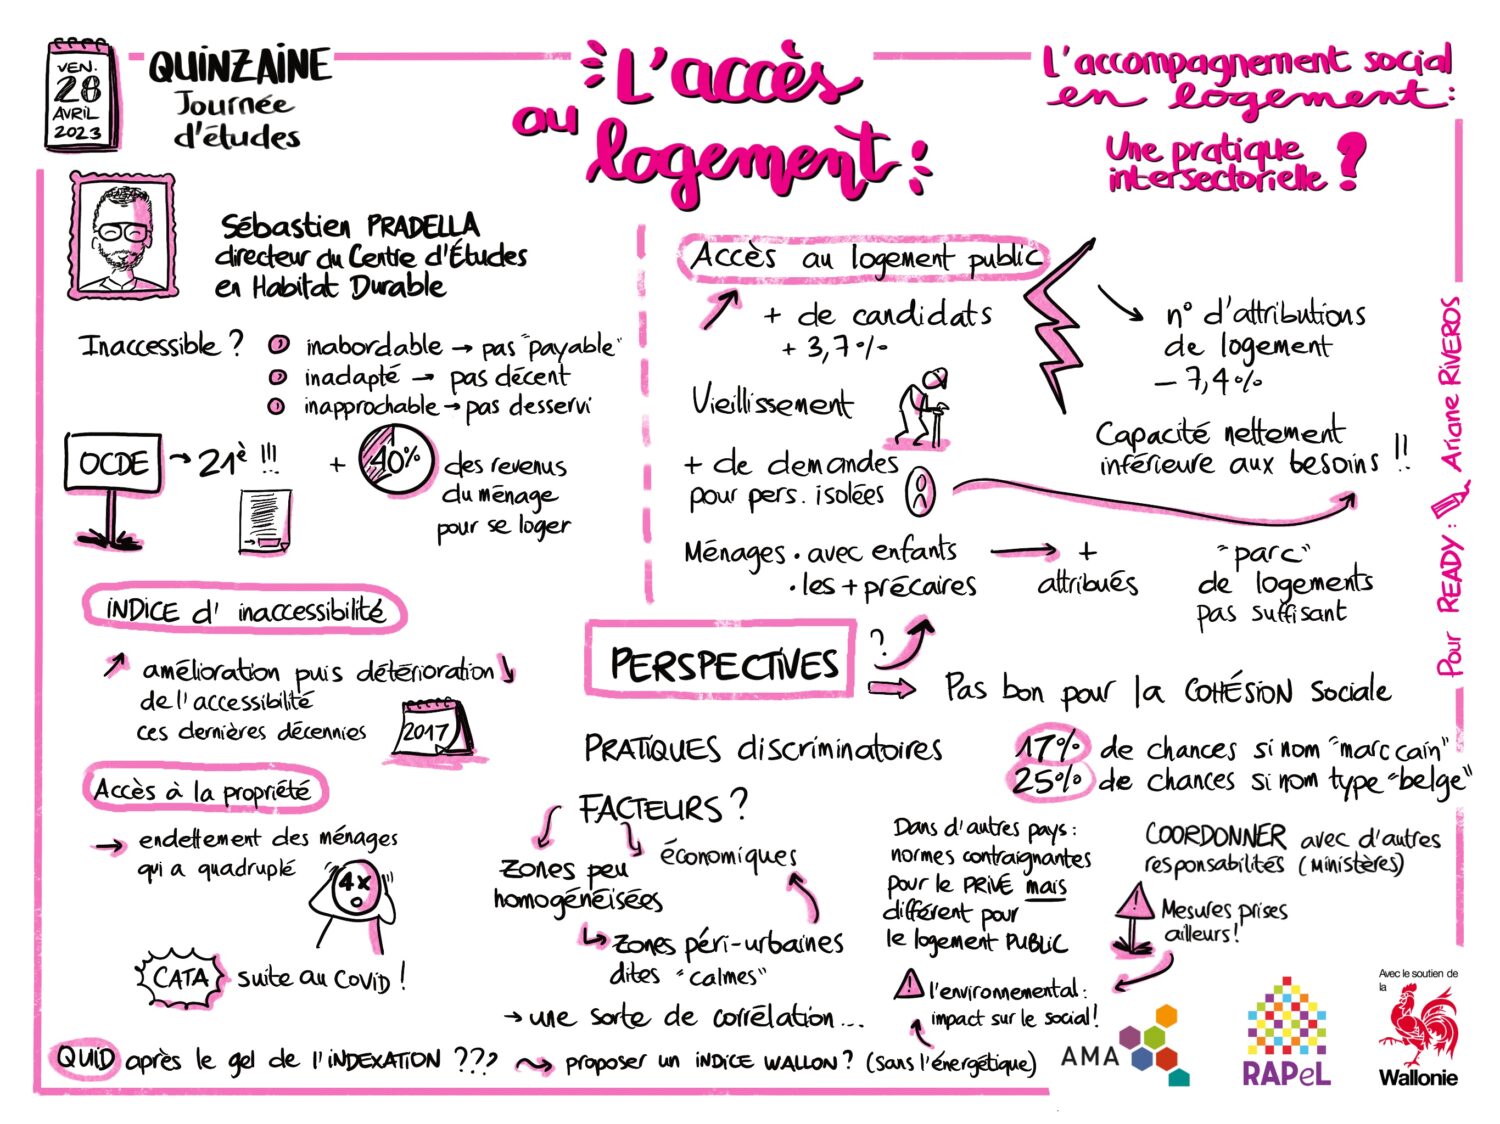 VEN.
28
AVRIL
2023
QUINZAINE
Journée
d'études
L'accès
au
logement :
L'accompagnement social
en logement :
Une pratique
intersectorielle ?
Sébastien PRADELLA
directeur du Centre d'Études
en Habitat Durable
Inaccessible ?
inabordable → pas "payable"
inadapté → pas décent
inapprochable → pas desservi
OCDE → 21è !!!
+ 40% des revenus
du ménage
pour se loger
INDICE d' inaccessibilité
amélioration puis détérioration
de l'accessibilité
ces dernières décennies
2017
Accès à la propriété
→ endettement des ménages
qui a quadruplé
4x
CATA suite au Covid !
Accès au logement public
+ de candidats
+ 3,7%
n° d'attributions
de logement
– 7,4%
Vieillissement
Capacité nettement
inférieure aux besoins !!
+ de demandes
pour pers. isolées
Ménages • avec enfants
• les + précaires
→ +
attribués
"parc"
de logements
pas suffisant
PERSPECTIVES
?
Pas bon pour la COHÉSION sociale
PRATIQUES discriminatoires
17% de chances si nom "marccain"
25% de chances si nom type "belge"
FACTEURS ?
Zones peu
homogénéisées
économiques
Zones péri-urbaines
dites "calmes"
→ une sorte de corrélation...
Dans d'autres pays :
normes contraignantes
pour le PRIVÉ mais
différent pour
le logement PUBLIC
COORDONNER avec d'autres
responsabilités (Ministères)
Mesures prises
ailleurs !
! l'environnemental :
impact sur le social !
QUID après le gel de l'INDEXATION ??? proposer un INDICE WALLON ? (sans l'énergétique)
Pour READY : Ariane RIVEROS
AMA
RAPeL
Avec le soutien de
la
Wallonie